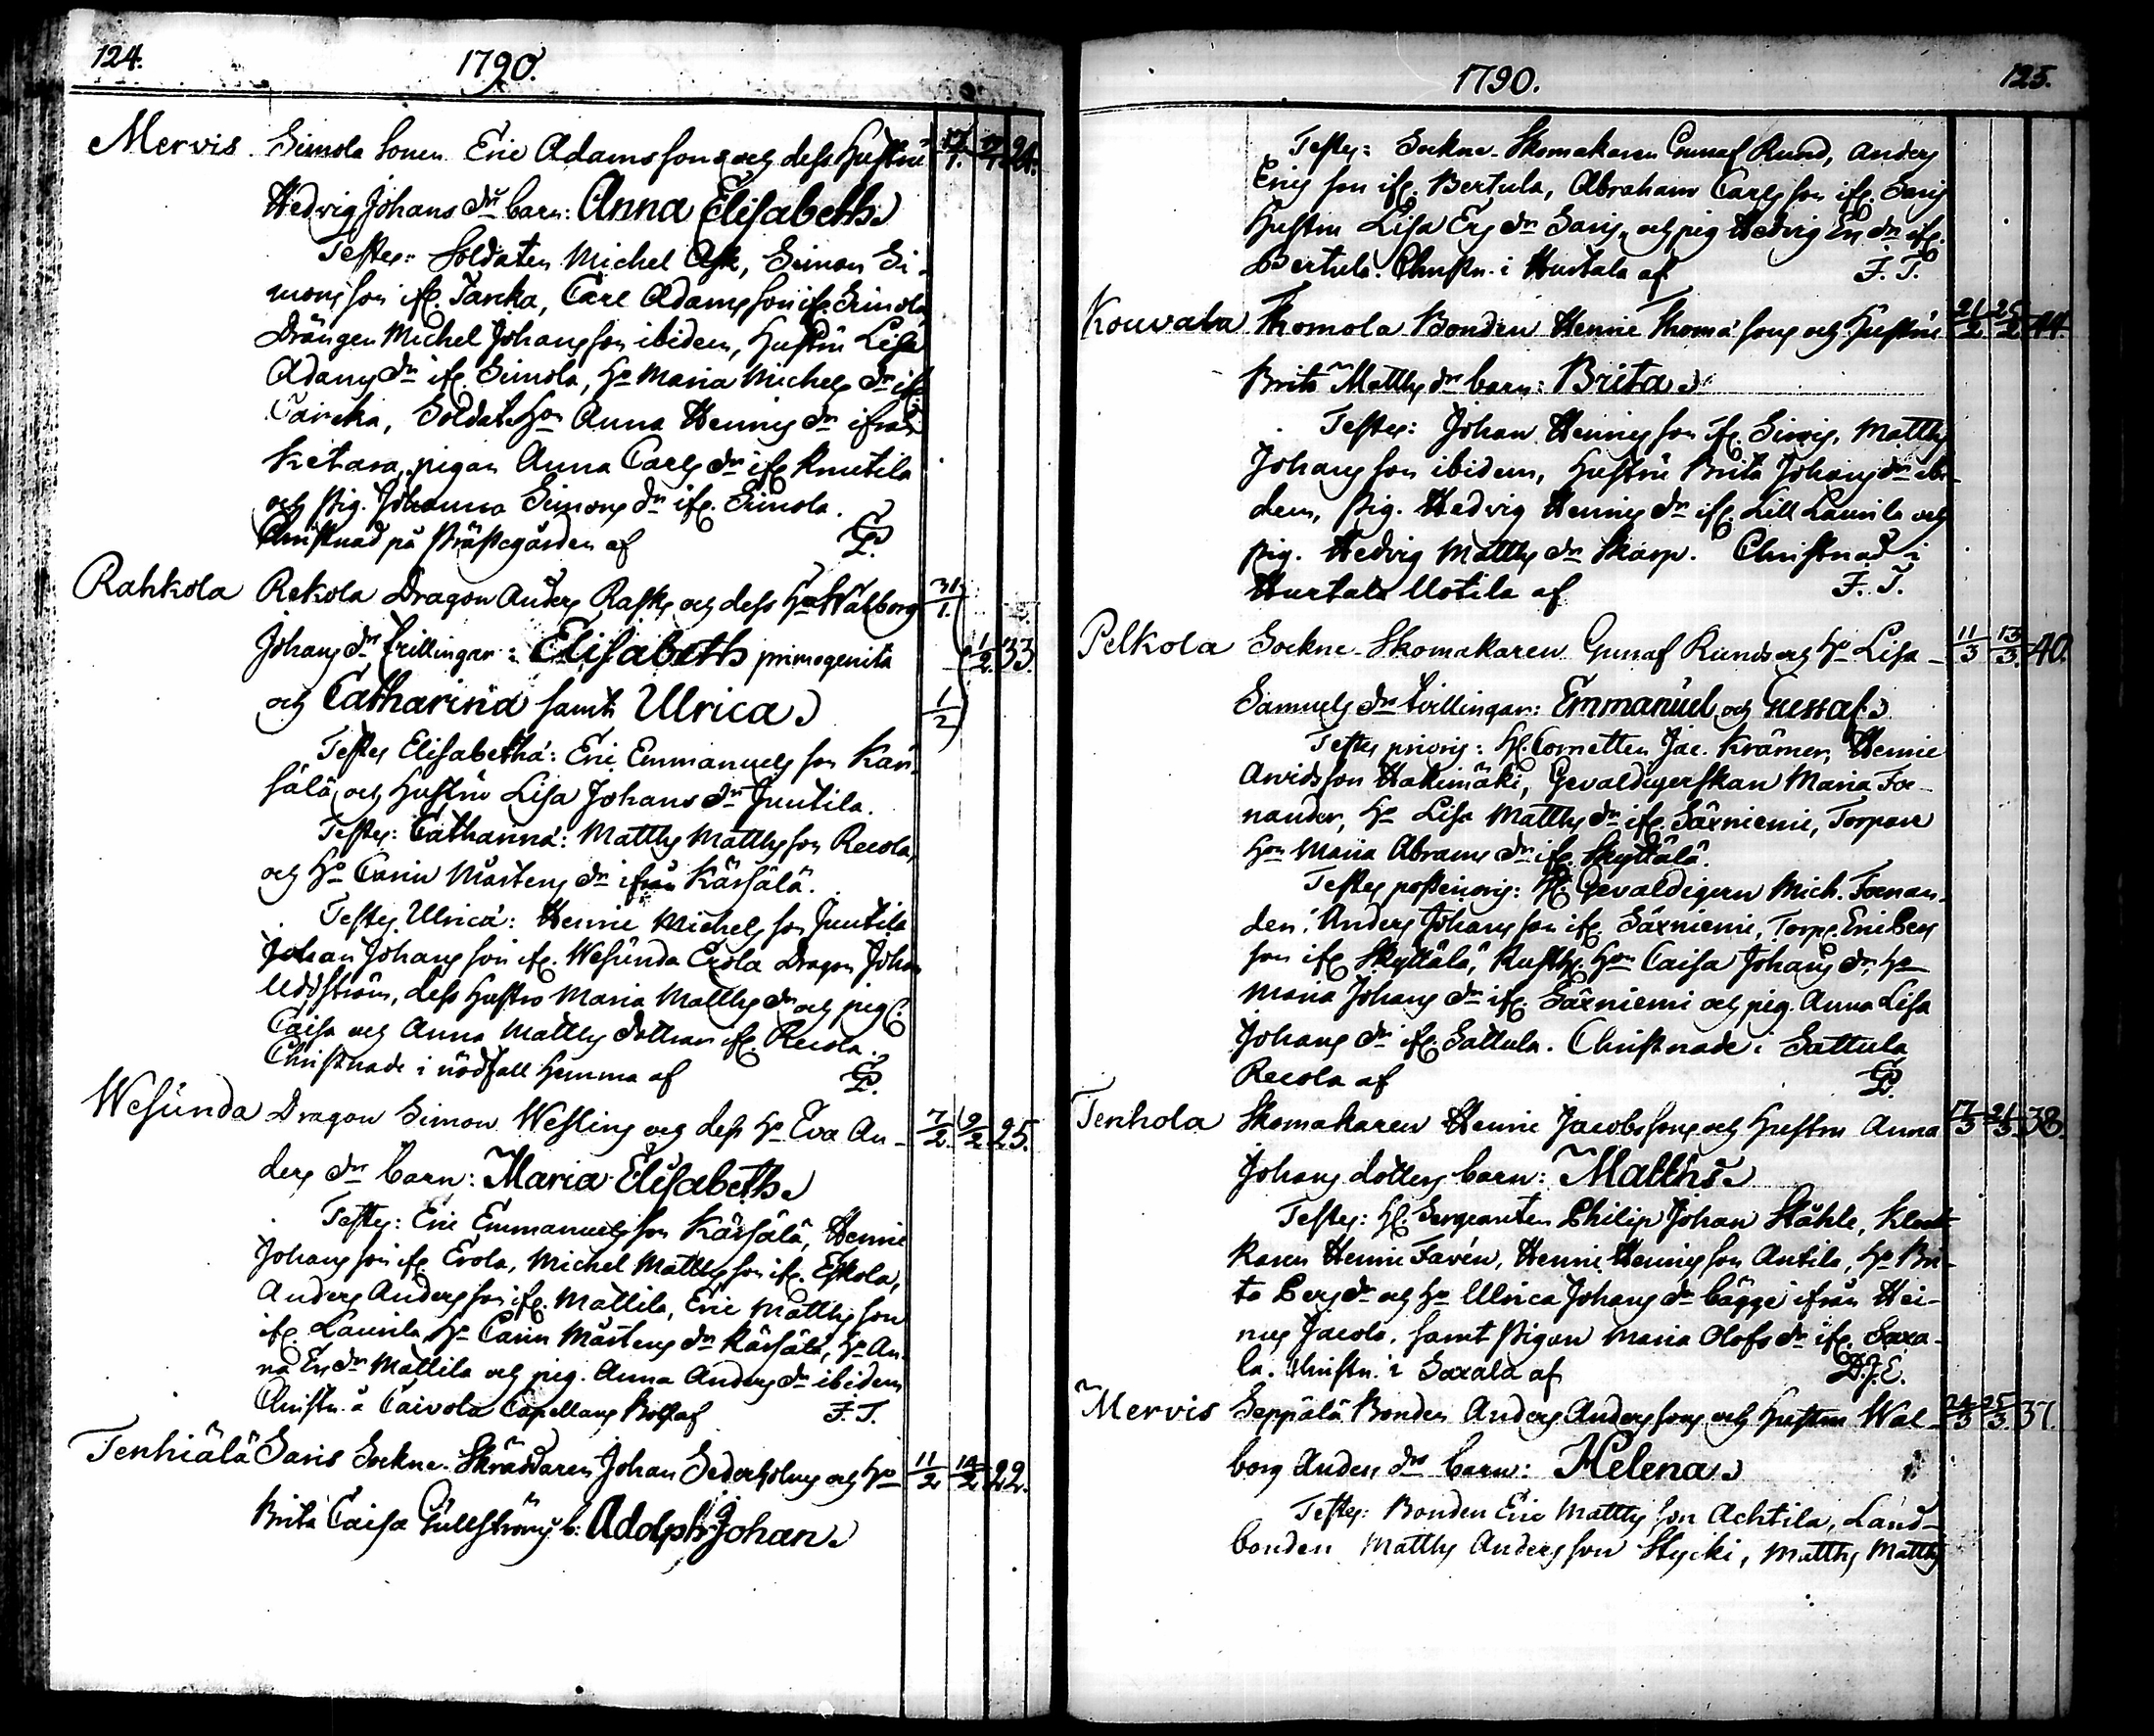 124.
1790.
Mervis. Simola Sonen Eric Adamssons och dess Hustru 17/1. 17/1 24.
Hedvig Johans dr barn: Anna Elisabeth
Testes: Soldaten Michel Ask, Simon Si-
mons son ifr. Tareka, Carl Adams son ifr. Simola
Drängen Michel Johans son ibidem, Hustru Lisa
Adams dr ifr. Simola, Ho Maria Michels dr ifr.
Careka, Soldat Hon Anna Hennes dr ifrån
Ketara, pigan Anna Carls dr ifr. Knutila
och Pig. Johanna Simons dr ifr. Simola.
Christnad på Prästegården af
Rahkola Rekola Dragon Anders Rasks och dess Ho Walborg 31/1.
Johans dr trillingar: Elisabeth primogenita 1/2. 33.
och Catharina samt Ulrica 1/2
Testes Elisabethæ: Eric Emmanuels son Kär-
sälä, och Hustru Lisa Johans dr Juutila.
Testes: Catharinæ: Matths Matths son Recola,
och Ho Carin Mårtens dr ifrån Kärsälä.
Testes Ulricæ: Hennie Michels son Juutila
Johan Johans son ifr. Wesunda Erola Dragon Johan
Uddström, dess Hustro Maria Matths dr och pig.
Caisa och Anna Matths döttrar ifr. Recola.
Christnade i nödfall hemma af
Wesunda Dragon Simon Wessling och dess Ho Eva An- 7/2. 9/2 25.
ders dr barn: Maria Elisabeth
Testes: Eric Emmanuels son Kärsälä, Hennie
Johans son ifr. Erola, Michel Matths son ifr. Eskola,
Anders Anders son ifr. Mattila, Eric Matths son
ifr. Launila, Ho Carin Mårtens dr Kärsälä, Ho An-
na Ers dr Mattila och pig. Anna Anders dr ibidem
Christn. å Caivola Capellans Bol af F. T.
Tenhiälä Saris Sockne-Skräddaren Johan Sederholms och Ho 11/2 14/2 22.
Brita Caisa Gullströms b: Adolph Johan
1790.
125.
Testes: Sockne-Skomakaren Gustaf Rund, Anders
Erics son ifr. Bertula, Abraham Carls son ifr. Saris
Hustru Lisa Ers dr Saris, och pig Hedvig Ers dr ifr.
Bertula. Christn. i Hurtala af F. T.
Kouvala Thomola Bonden Hennie Thomæ sons och Hustru 21/2 25/2 44.
Brita Matths dr barn: Brita
Testes: Johan Hennes son ifr. Sinnis, Matths
Johans son ibidem, Hustru Brita Johans dr ibi-
dem, Pig. Hedvig Hennes dr ifr. Lill Launila och
pig. Hedvig Matths dr Skarp. Christnad i
Hurtala Uotila af F. T.
Pelkola Sockne-Skomakaren Gustaf Runds och Ho Lisa 11/3 13/3 40.
Samuels dr tvillingar: Emmanuel och Gustaf
Testes prioris: Hr Cornetten Jac. Krämer, Hennie
Arvidsson Hakimäki, Gevaldigerskan Maria For-
nander, Ho Lisa Matths dr ifr. Särniemi, Torpare
Hon Maria Abrams dr ifr. Skyttälä.
Testes posterioris: Hr Gevaldigern Mich. Fornan-
der, Anders Johans son ifr. Särniemi, Torp. Eric Ers
son ifr. Skyttälä, Rusth. Hon Caisa Johans dr, Ho
Maria Johans dr ifr. Särniemi och pig. Anna Lisa
Johans dr ifr. Sattula. Christnade i Sattula
Recola af
Tenhola Skomakaren Hennie Jacobs sons och Hustru Anna 17/3 21/3 38.
Johans dotters barn: Matths
Testes: Hr. Sergeanten Philip Johan Ståhle, Klock-
karen Hennie Favén, Hennie Hennes son Antila, Ho Bri-
ta Pers dr och Ho Ulrica Johans dr bägge ifrån Hei-
nus Jacola, samt Pigan Maria Olofs dr ifr. Saxa-
la. Christn. i Saxala af D.J.E.
Mervis Seppälä Bonden Anders Anders sons och Hustru Wal- 24/3 25/3 37.
borg Anders dr barn: Helena
Testes: Bonden Eric Matths son Achtila, Land-
bonden Matths Anders son Stycki, Matths Matths